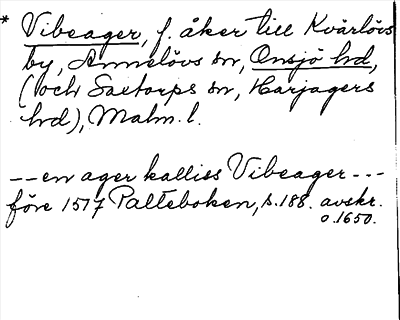 * Vibeager, f. åker till Kvärlövs
by, Annelövs sn, Onsjö hd,
(och Saxtorps sn, Harjagers
hd), Malm. l.
-- en ager kalliss Vibeager ---
före 1517 Palteboken, s. 188. avskr.
o. 1650.